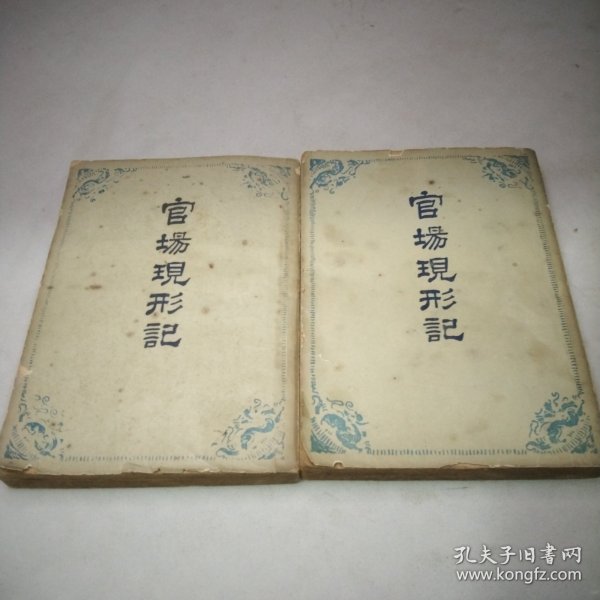 官場現形記
官場現形記
孔夫子旧書网
www.kongfz.com